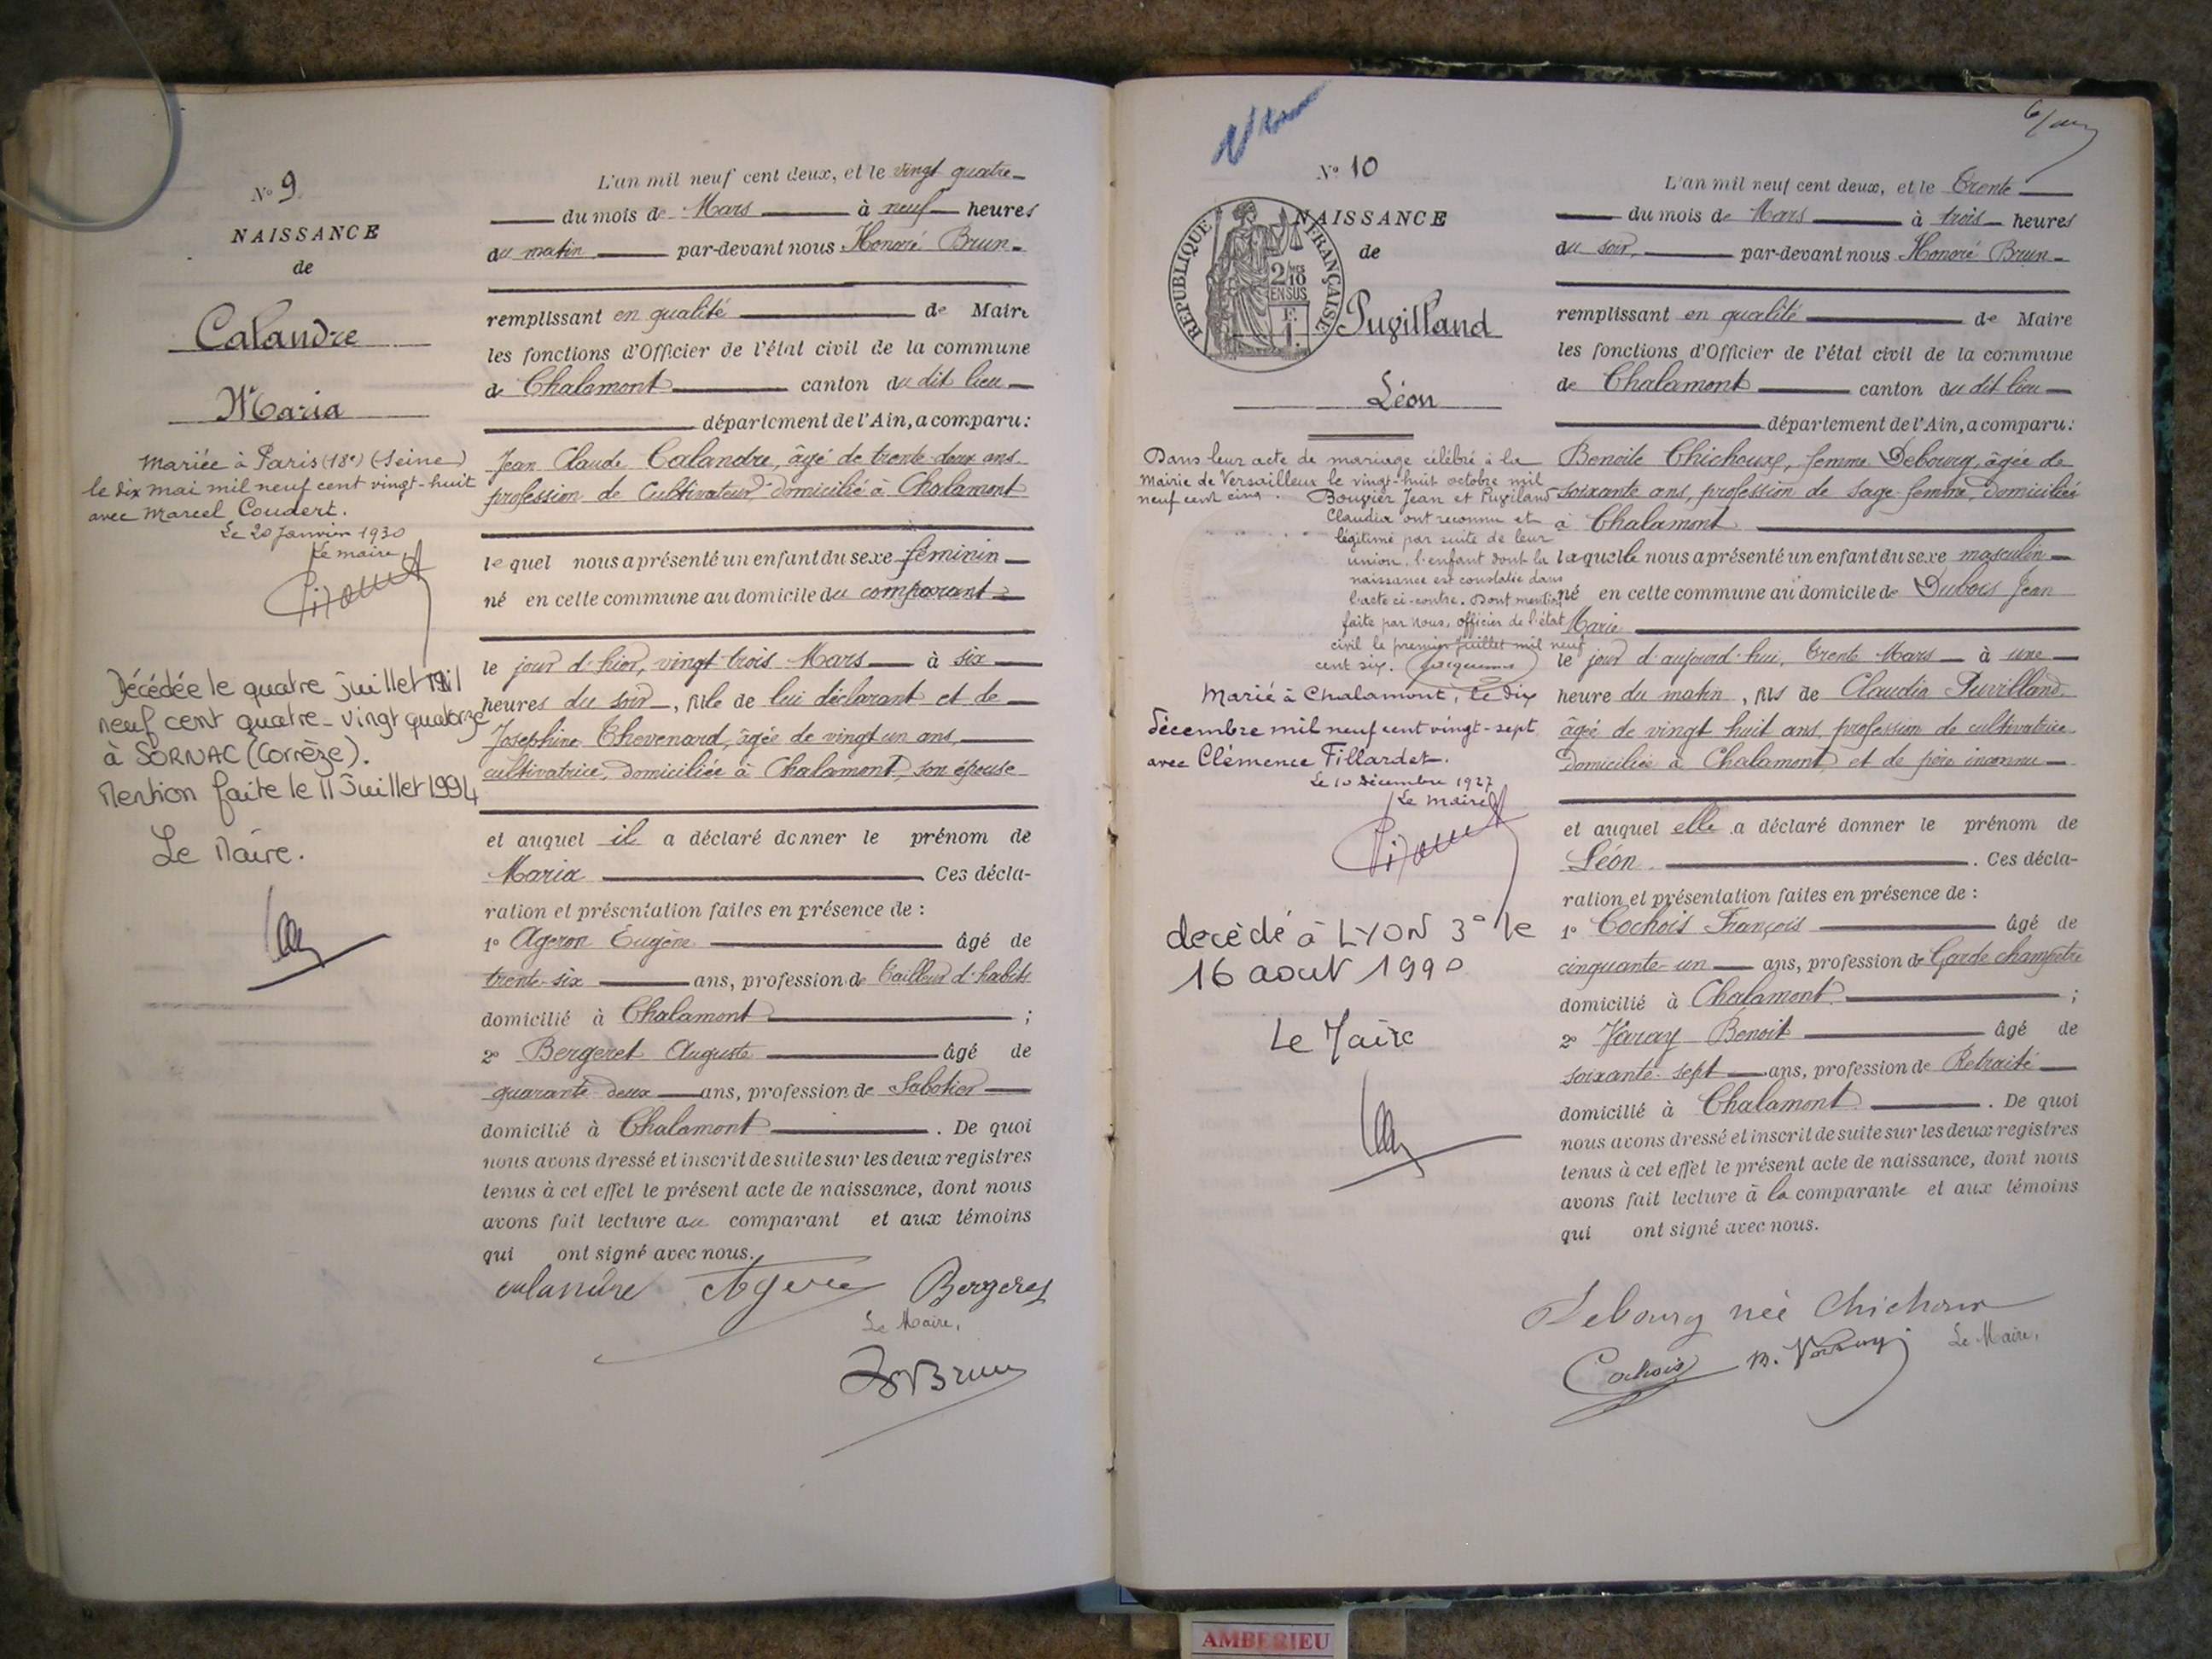 Nº 9
NAISSANCE
de
Calandre
Maria
Mariée à Paris (18e) (Seine)
le dix mai mil neuf cent vingt-huit
avec Marcel Coudert.
Le 20 Janvier 1930
Le maire,
Décédée le quatre juillet mil
neuf cent quatre-vingt quatorze
à SORNAC (Corrèze).
Mention faite le 11 Juillet 1994
Le Maire.
L'an mil neuf cent deux, et le vingt quatre
du mois de Mars à neuf heures
du matin par-devant nous Honoré Brun
remplissant en qualité de Maire
les fonctions d'Officier de l'état civil de la commune
de Chalamont canton du dit lieu
département de l'Ain, a comparu:
Jean Claude Calandre, âgé de trente deux ans
profession de Cultivateur domicilié à Chalamont
lequel nous a présenté un enfant du sexe féminin
né en cette commune au domicile du comparant
le jour d'hier, vingt trois Mars à six
heures du soir, fille de lui déclarant et de
Josephine Thevenard, âgée de vingt un ans,
cultivatrice, domiciliée à Chalamont, son épouse
et auquel il a déclaré donner le prénom de
Maria Ces décla-
ration et présentation faites en présence de :
1º Ageron Eugène âgé de
trente-six ans, profession de Tailleur d'habits
domicilié à Chalamont ;
2º Bergeret Auguste âgé de
quarante deux ans, profession de Sabotier
domicilié à Chalamont . De quoi
nous avons dressé et inscrit de suite sur les deux registres
tenus à cet effet le présent acte de naissance, dont nous
avons fait lecture au comparant et aux témoins
qui ont signé avec nous.
calandre Bergeret
Le Maire,
Brun
Nº 10
NAISSANCE
de
REPUBLIQUE FRANÇAISE
2/10
EN SUS
Puvilland
Léon
Dans leur acte de mariage célébré à la
Mairie de Versailleux le vingt-huit octobre mil
neuf cent cinq. Bouvier Jean et Puviland
Claudia ont reconnu et
légitimé par suite de leur
union, l'enfant dont la
naissance est constatée dans
l'acte ci-contre. Dont mention
faite par nous, officier de l'état
civil le premier juillet mil neuf
cent six.
Marié à Chalamont, le dix
décembre mil neuf cent vingt-sept
avec Clémence Fillardet.
Le 10 décembre 1927
Le maire
decédé à LYON 3° le
16 aout 1990
Le Maire
6/
L'an mil neuf cent deux, et le Trente
du mois de Mars à trois heures
du soir, par-devant nous Honoré Brun
remplissant en qualité de Maire
les fonctions d'Officier de l'état civil de la commune
de Chalamont canton du dit lieu
département de l'Ain, a comparu:
Benoite Chichoux, femme Debourg, âgée de
soixante ans, profession de sage-femme, domiciliée
à Chalamont
laquelle nous a présenté un enfant du sexe masculin
né en cette commune au domicile de Dubois Jean
Marie
le jour d'aujourd'hui, trente Mars à une
heure du matin, fils de Claudia Puvilland
âgée de vingt huit ans, profession de cultivatrice
Domiciliée à Chalamont et de père inconnu
et auquel elle a déclaré donner le prénom de
Léon . Ces décla-
ration et présentation faites en présence de :
1º Cochois François âgé de
cinquante-un ans, profession de Garde champêtre
domicilié à Chalamont ;
2º Varay Benoit âgé de
soixante-sept ans, profession de Retraité
domicilié à Chalamont . De quoi
nous avons dressé et inscrit de suite sur les deux registres
tenus à cet effet le présent acte de naissance, dont nous
avons fait lecture à la comparante et aux témoins
qui ont signé avec nous.
Debourg née Chichoux
Cochois B. Varay Le Maire,
AMBERIEU